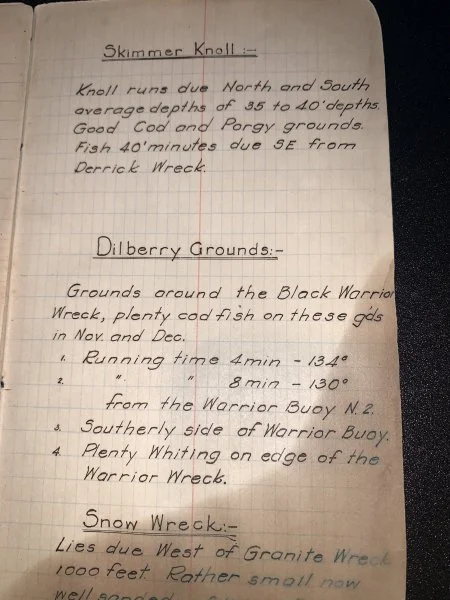 Skimmer Knoll :-
Knoll runs due North and South
average depths of 35 to 40' depths.
Good Cod and Porgy grounds.
Fish 40' minutes due SE from
Derrick Wreck.
Dilberry Grounds:-
Grounds around the Black Warrior
Wreck, plenty cod fish on these gds
in Nov. and Dec.
1. Running time 4 min - 134°
2. " " 8 min - 130°
from the Warrior Buoy N.2.
3. Southerly side of Warrior Buoy.
4. Plenty Whiting on edge of the
Warrior Wreck.
Snow Wreck:-
Lies due West of Granite Wreck
1000 feet. Rather small now
well sanded